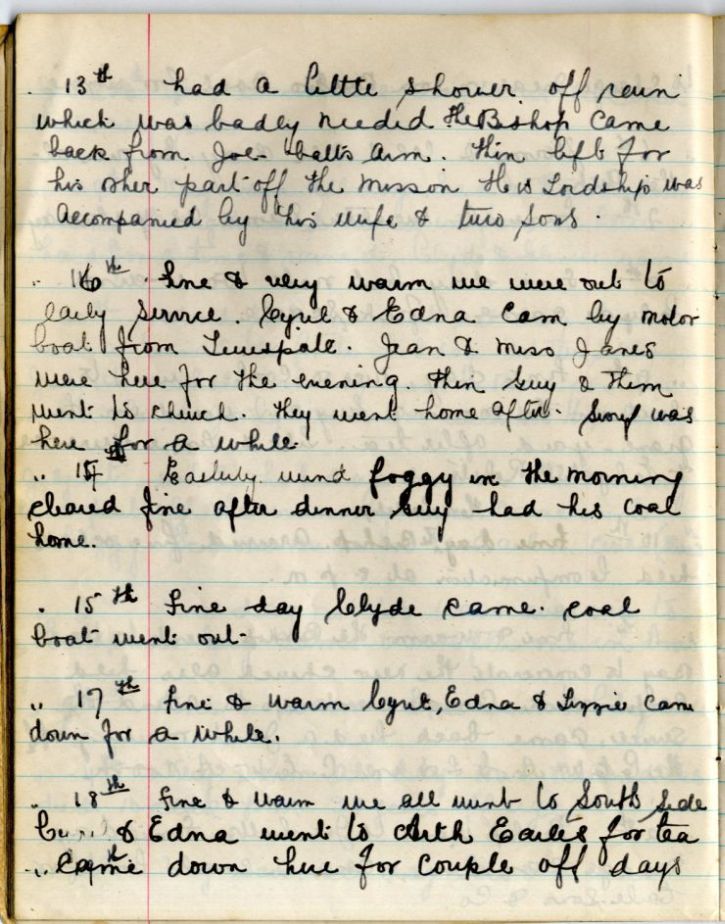 . 13th had a little shower off rain
which was badly needed the Bishop came
back from Joe batts arm. then left for
his other part off the mission His Lordship was
accompanied by his wife & two sons.
" 16th. fine & very warm we were out to
early service. Cyril & Edna cam by motor
boat from Lewisporte. Jean & Miss Janes
were here for the evening. then Guy & them
went to church. they went home after. was
here for a while.
" 14 Easterly wind foggy in the morning
cleared fine after dinner Guy had his coal
home.
. 15th fine day Clyde came. coal
boat went out.
" 17th fine & warm Cyril, Edna & Lizzie cam
down for a while.
" 18th fine & warm we all went to South Side
& Edna went to Arth Earles for tea
" came down here for couple off days